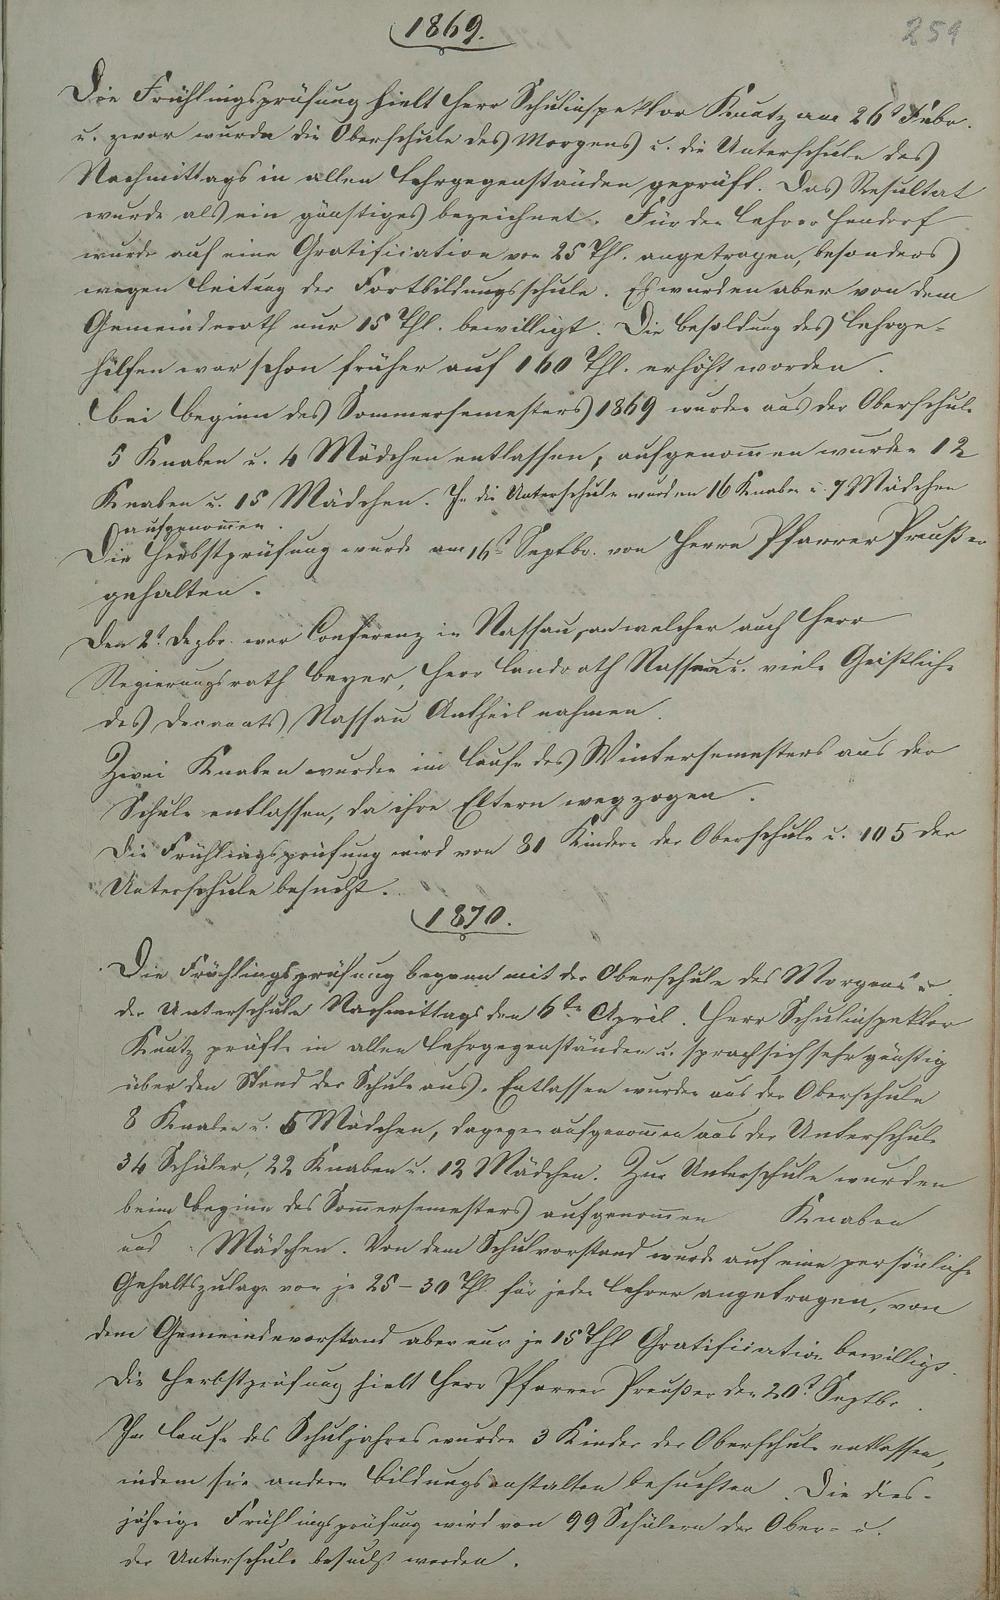 1869.
259
Die Frühlingsprüfung hielt Herr Schulinspektor Kuntz am 26t Febr.
u. zwar wurde die Oberschule des Morgens u. die Unterschule des
Nachmittags in allen Lehrgegenständen geprüft. Das Resultat
wurde als ein günstiges bezeichnet. Für den Lehrer Hendorf
wurde auf eine Gratification von 25 Thl. angetragen, besonders
wegen Leitung der Fortbildungsschule. Es wurden aber von dem
Gemeinderath nur 15 Thl. bewilligt. Die Besoldung des Lehrge-
hilfen war schon früher auf 160 Thl. erhöht worden.
Bei Beginn des Sommersemesters 1869 wurden aus der Oberschule
5 Knaben u. 4 Mädchen entlassen, aufgenommen wurden 12
Knaben u. 15 Mädchen. In die Unterschule wurden 16 Knaben u. 7 Mädchen
aufgenommen.
Die Herbstprüfung wurde am 16t Septbr. von Herrn Pfarrer Preußer
gehalten.
Den 2t. Dezbr. war Conferenz in Nassau, an welcher auch Herr
Regierungsrath Beyer, Herr Landrath Nassau u. viele Geistliche
des Decanats Nassau Antheil nahmen.
Zwei Knaben wurden im Laufe des Wintersemesters aus der
Schule entlassen, da ihre Eltern wegzogen.
Die Frühlingsprüfung wird von 81 Kindern der Oberschule u. 105 der
Unterschule besucht.
1870.
Die Frühlingsprüfung begann mit der Oberschule des Morgens u.
der Unterschule Nachmittags den 6ten April. Herr Schulinspektor
Kuntz prüfte in allen Lehrgegenständen u. sprach sich sehr günstig
über den Stand der Schule aus. Entlassen wurden aus der Oberschule
8 Knaben u. 5 Mädchen, dagegen aufgenommen aus der Unterschule
34 Schüler, 22 Knaben u. 12 Mädchen. Zur Unterschule wurden
beim Beginn des Sommersemesters aufgenommen Knaben
und Mädchen. Von dem Schulvorstand wurde auf eine persönliche
Gehaltszulage von je 25 – 30 Thl. für jeden Lehrer angetragen, von
dem Gemeindevorstand aber nur je 15 Thl Gratification bewilligt.
Die Herbstprüfung hielt Herr Pfarrer Preußer den 20t. Septbr.
Im Laufe des Schuljahres wurden 3 Kinder der Oberschule entlassen,
indem sie andere Bildungsanstalten besuchten. Die dies-
jährige Frühlingsprüfung wird von 99 Schülern der Ober- u.
der Unterschule besucht werden.